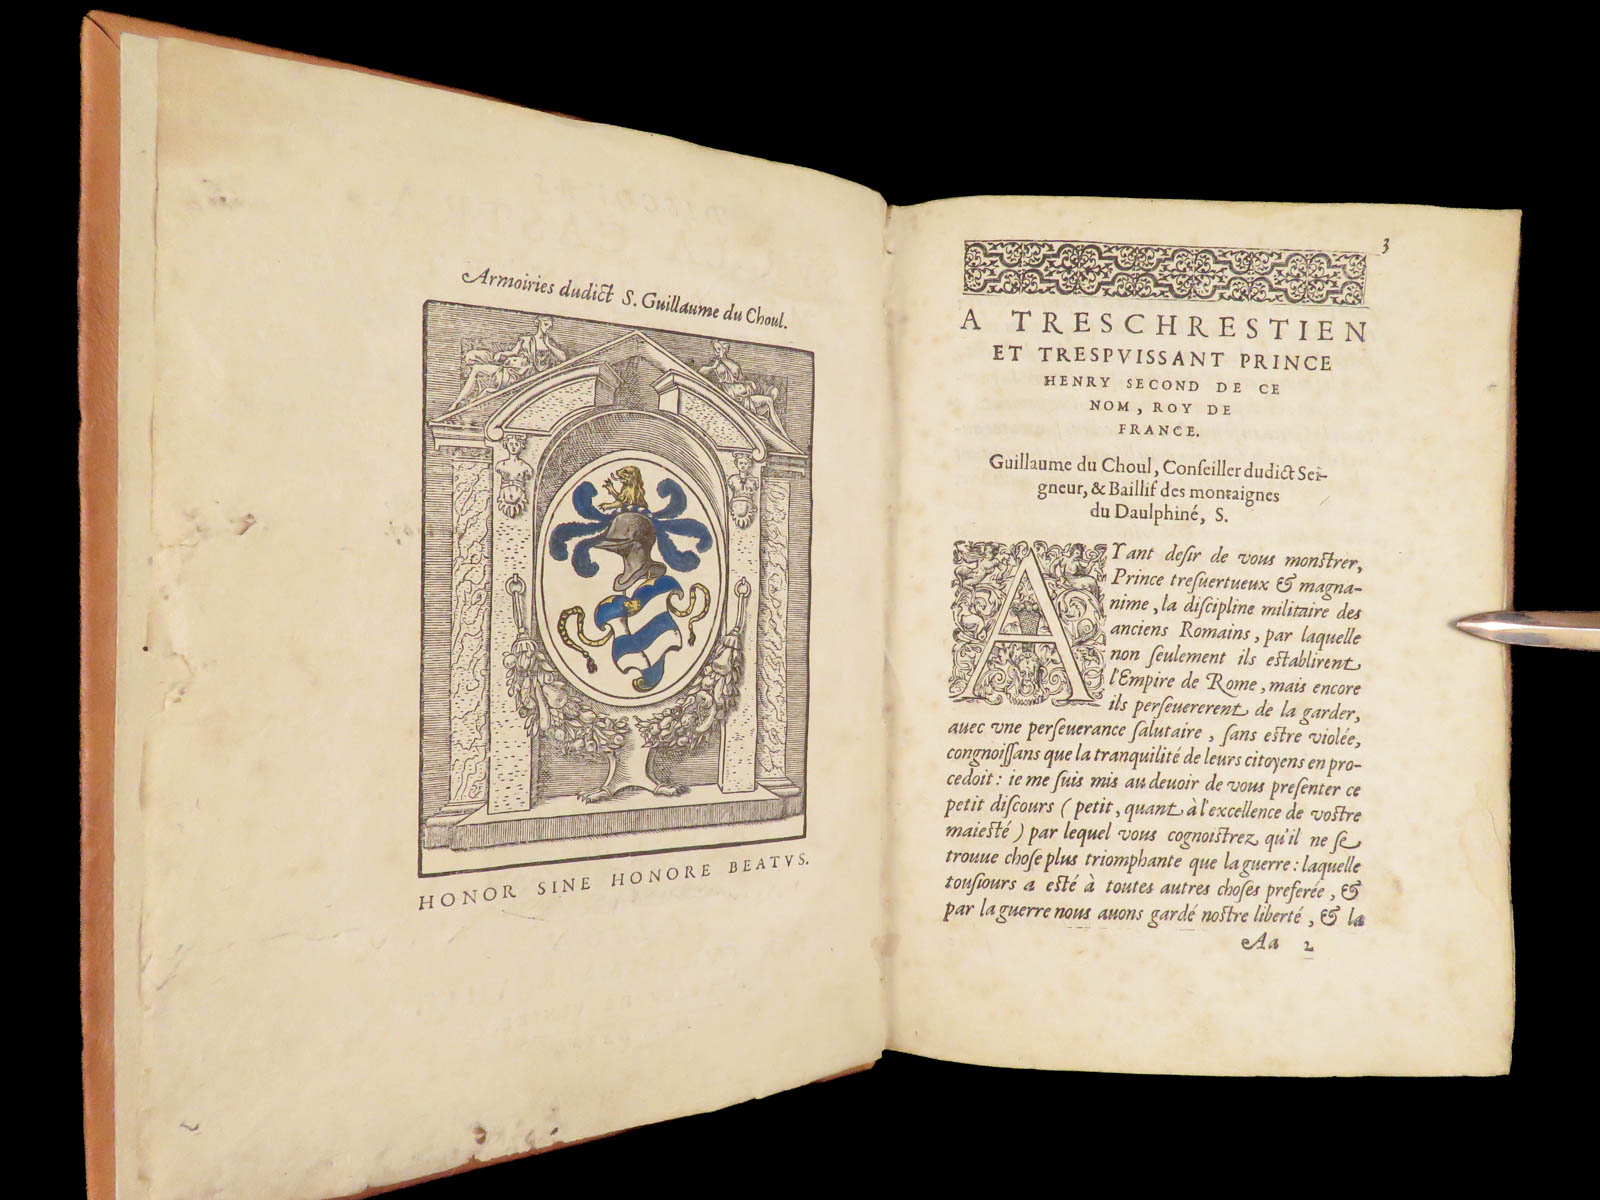 Armoiries dudict S. Guillaume du Choul.
HONOR SINE HONORE BEATVS.
3
A TRESCHRESTIEN
ET TRESPVISSANT PRINCE
HENRY SECOND DE CE
NOM, ROY DE
FRANCE.
Guillaume du Choul, Conſeiller dudict Sei-
gneur, & Baillif des montaignes
du Daulphiné, S.
AYant deſir de vous monſtrer,
Prince treſuertueux & magna-
nime, la diſcipline militaire des
anciens Romains, par laquelle
non ſeulement ils eſtablirent
l'Empire de Rome, mais encore
ils perſeuererent de la garder,
auec vne perſeuerance ſalutaire, ſans eſtre violée,
congnoiſſans que la tranquilité de leurs citoyens en pro-
cedoit: ie me ſuis mis au deuoir de vous preſenter ce
petit diſcours (petit, quant à l'excellence de voſtre
maieſté) par lequel vous cognoiſtrez qu'il ne ſe
trouue choſe plus triomphante que la guerre: laquelle
touſiours a eſté à toutes autres choſes preferée, &
par la guerre nous auons gardé noſtre liberté, & la
Aa 2